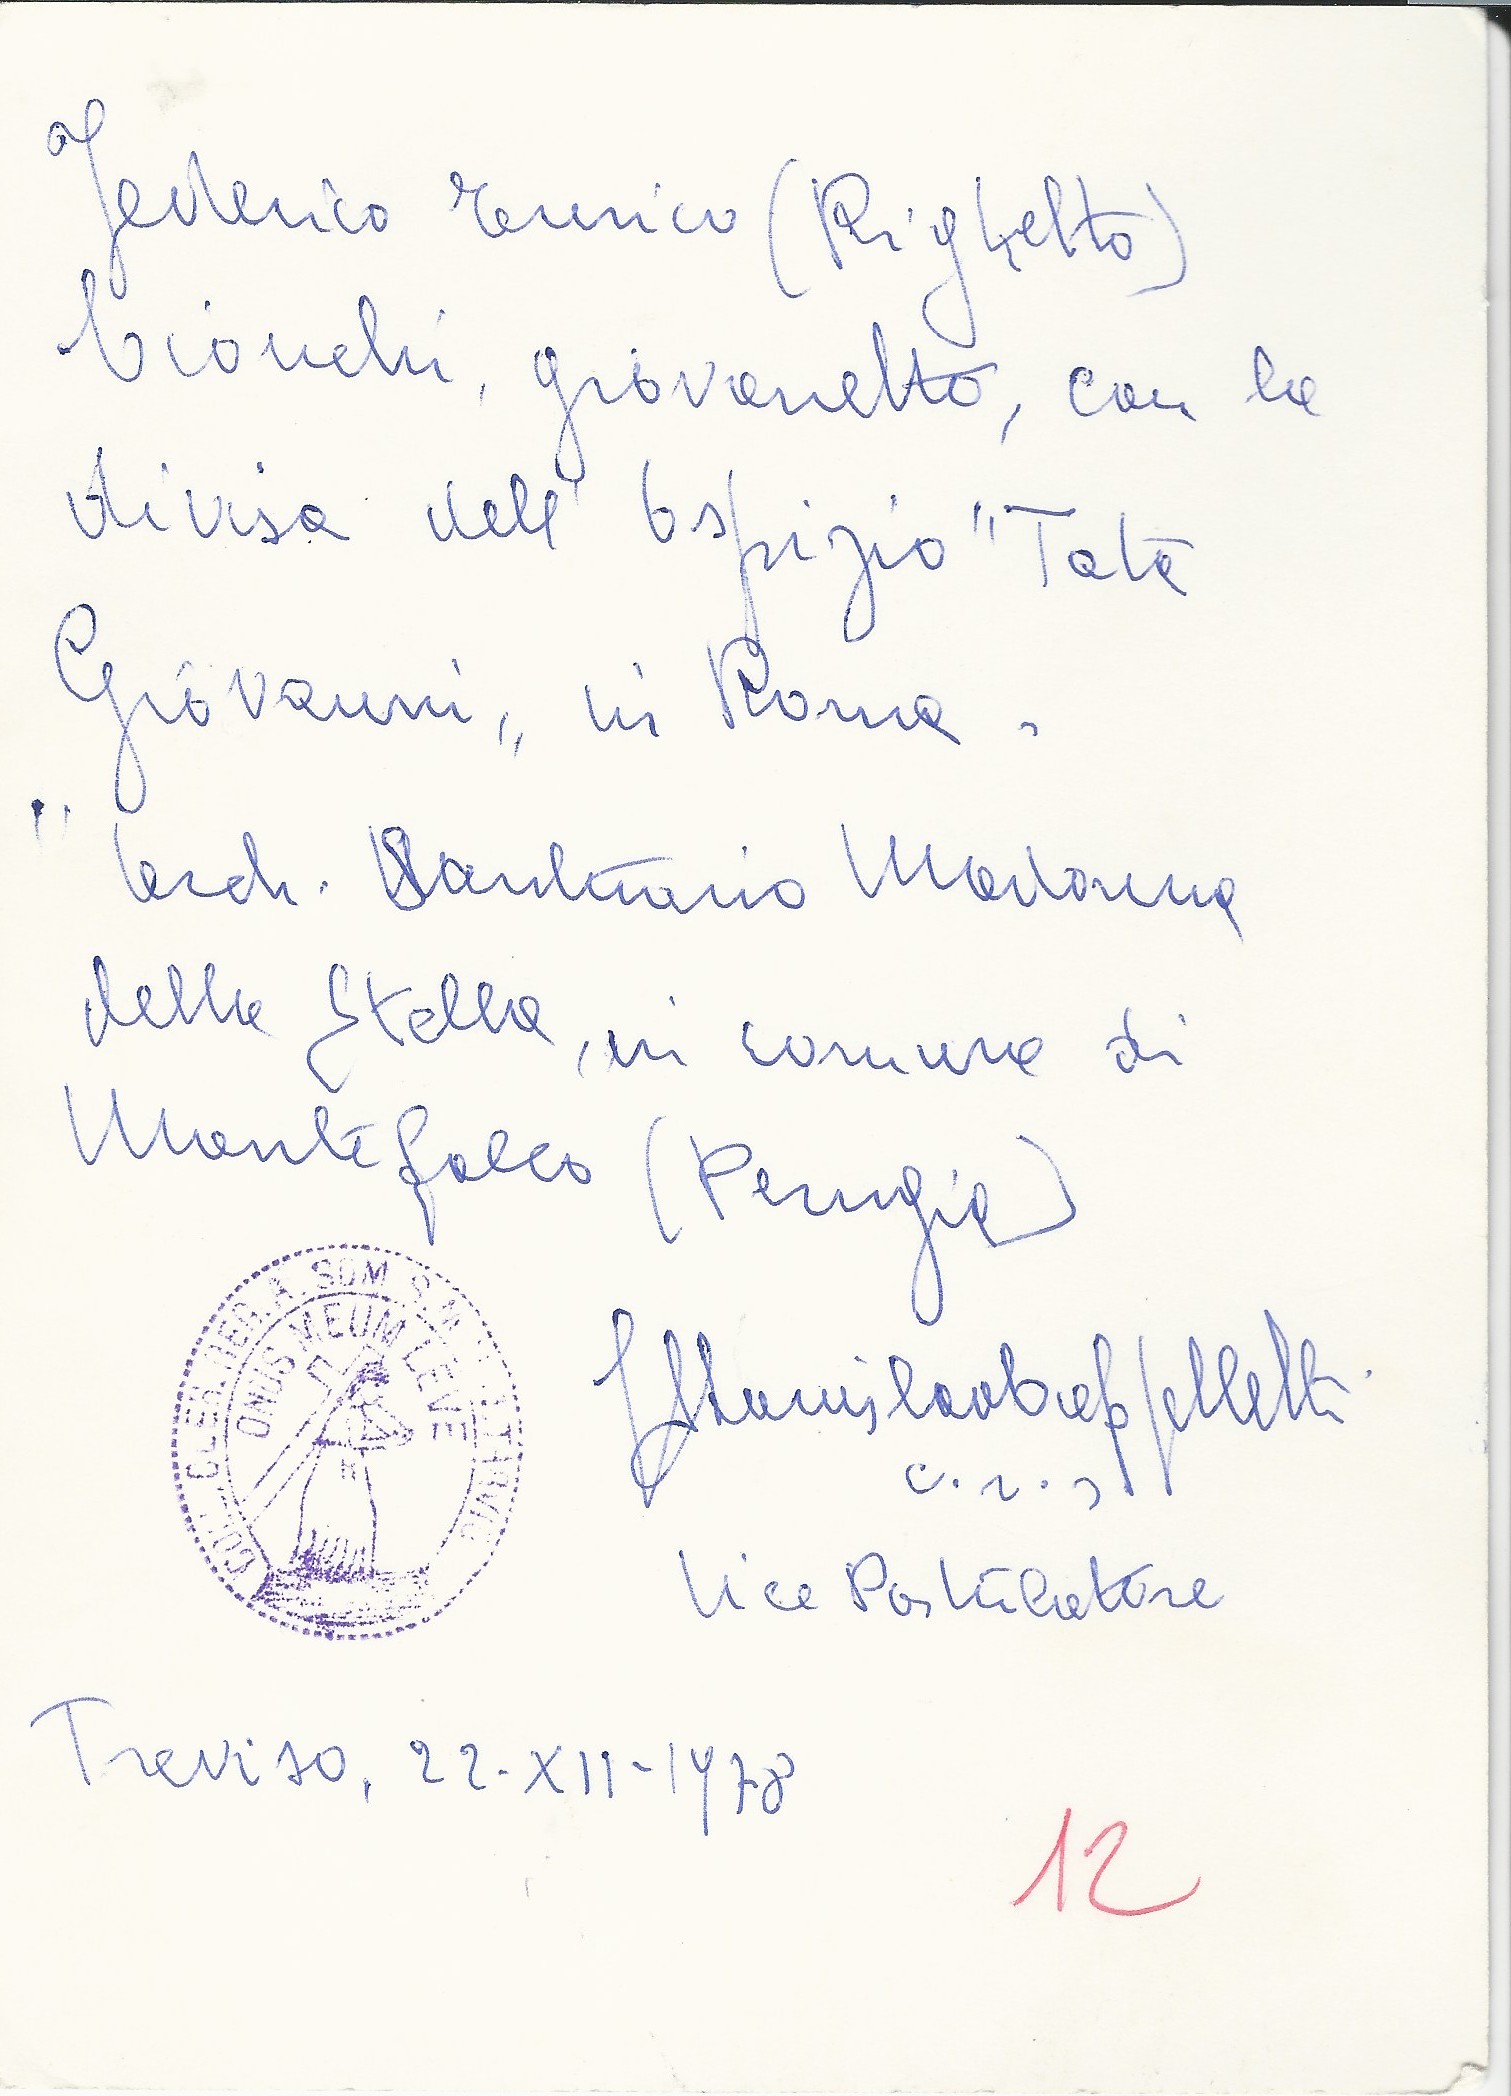 Federico Enrico (Righetto)
Cionchi, giovanetto, con la
divisa dell'Ospizio "Tata
Giovanni", in Roma.
" Arch. Santuario Madonna
della Stella, in comune di
Montefalco (Perugia)
COLL. CLER. REG. A. SOM. S. M. TARVIS
ONUS MEUM LEVE
P Stanislao Cappelletti
c.r.s
Vice Postulatore
Treviso, 22-XII-1978
12